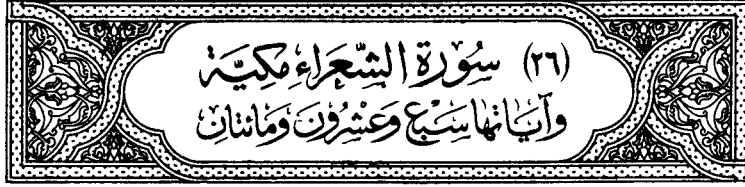 (٢٦) سُوۡرَةُ الشُّعَرَاءِ مَكِيَّة
وَآيَاتُهَا سَبْعٌ وَعِشْرُونَ وَمَائتَانِ